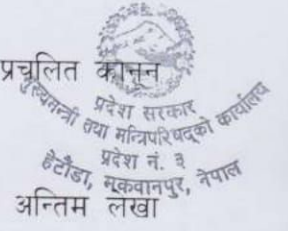 प्रचलित कानून
प्रदेश सरकार
मुख्यमन्त्री तथा मन्त्रिपरिषद्को कार्यालय
प्रदेश नं. ३
हेटौंडा, मकवानपुर, नेपाल
अन्तिम लेखा